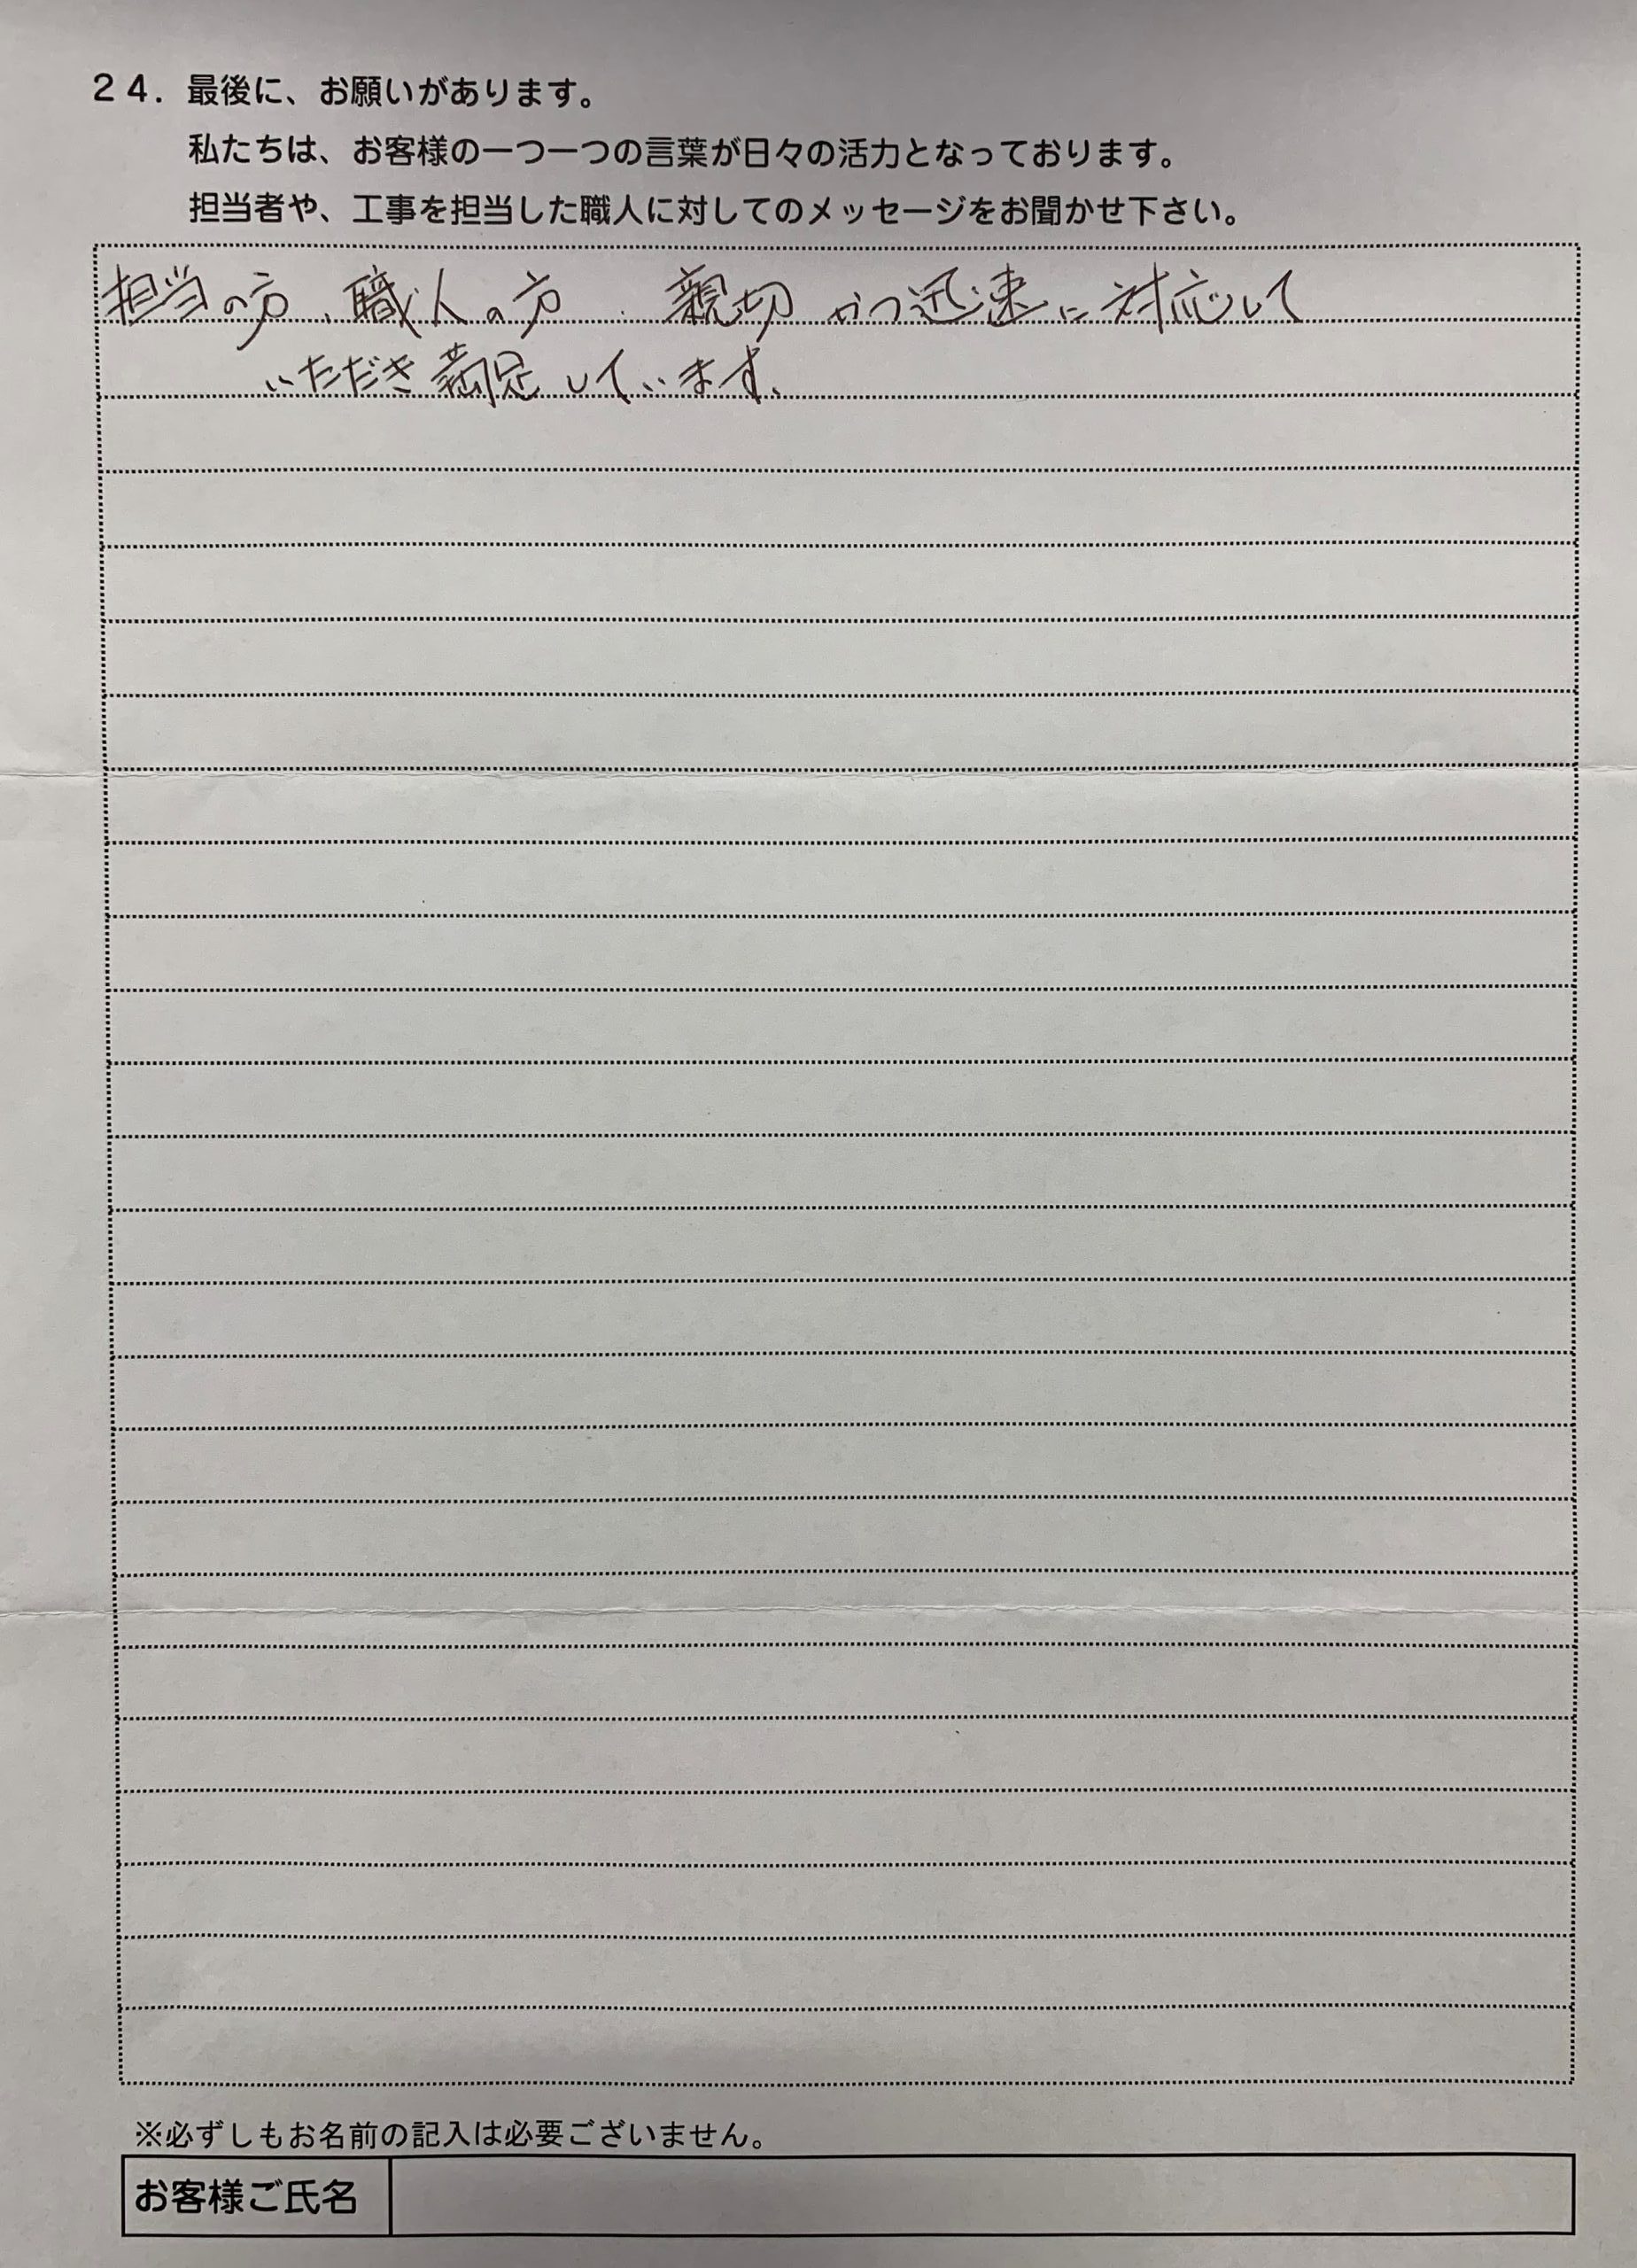 24. 最後に、お願いがあります。
私たちは、お客様の一つ一つの言葉が日々の活力となっております。
担当者や、工事を担当した職人に対してのメッセージをお聞かせ下さい。
担当の方、職人の方、親切かつ迅速に対応して
いただき満足しています。
※必ずしもお名前の記入は必要ございません。
お客様ご氏名